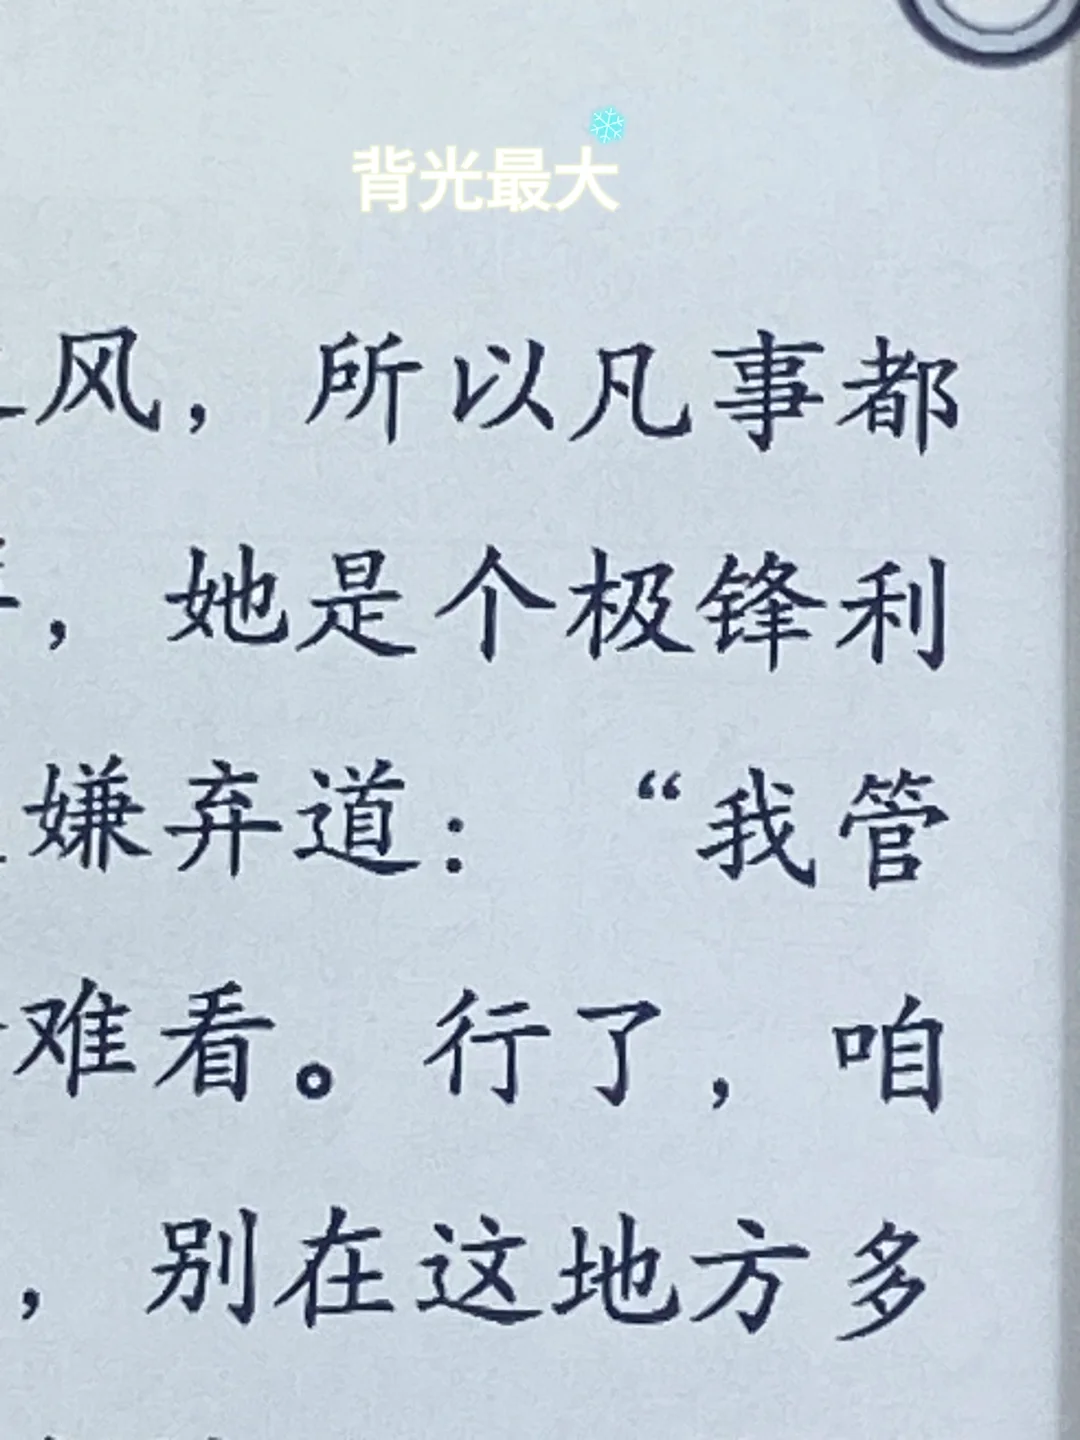 背光最大
风，所以凡事都
，她是个极锋利
嫌弃道：“我管
难看。行了，咱
，别在这地方多